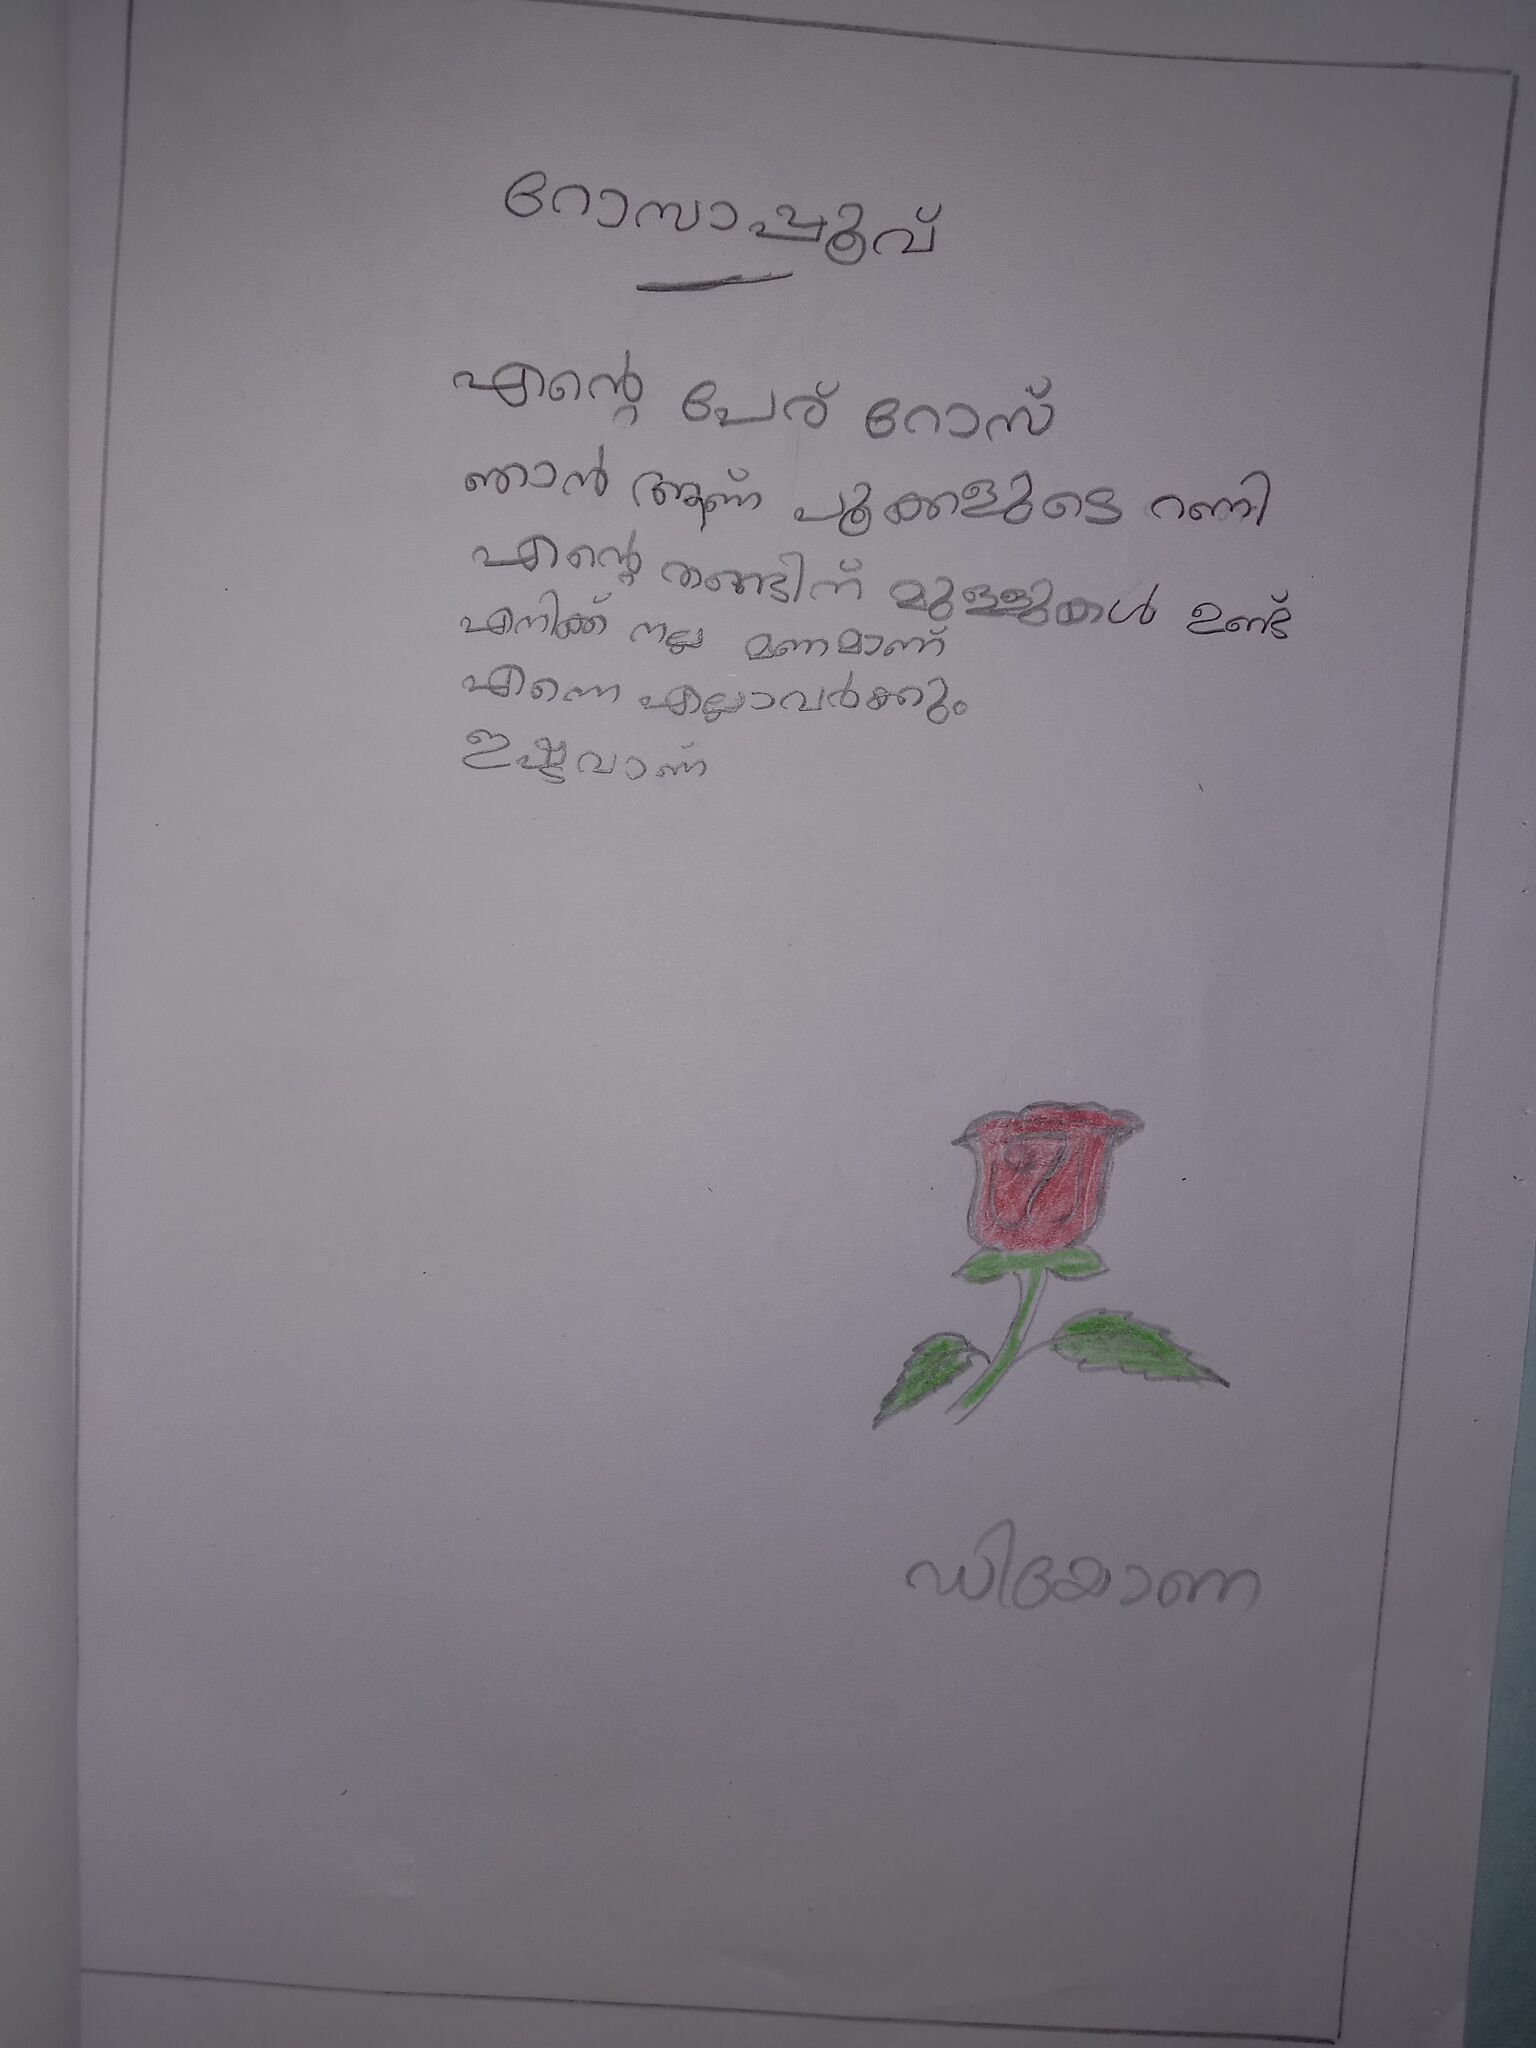 റോസാപ്പൂവ്
എന്റെ പേര് റോസ്
ഞാൻ ആണ് പൂക്കളുടെ റണി
എന്റെ തണ്ടിന് മുള്ളുകൾ ഉണ്ട്
എനിക്ക് നല്ല മണമാണ്
എന്നെ എല്ലാവർക്കും
ഇഷ്ടവാണ്
ഡിയോണ